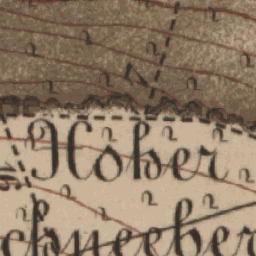 Hoher
chneeber